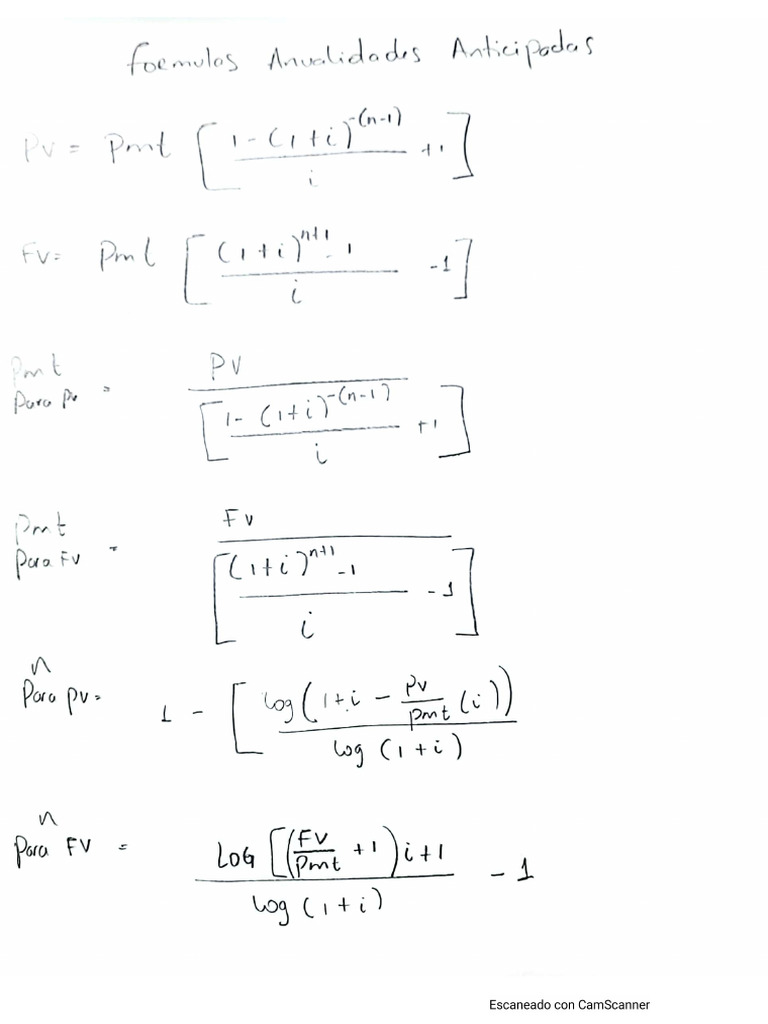 Formulas Anualidades Anticipadas
Pv = Pmt [ (1-(1+i)^-(n-1)) / i +1 ]
FV= Pmt [ ((1+i)^n+1 - 1) / i -1 ]
Pmt Para Pv = PV / [ (1-(1+i)^-(n-1)) / i +1 ]
Pmt Para FV = Fv / [ ((1+i)^n+1 -1) / i -1 ]
n Para pv= 1 - [ log(1+i - pv/pmt (i)) / log (1+i)
n Para FV = LOG [(FV/Pmt +1) i+1 / log (1+i) - 1
Escaneado con CamScanner